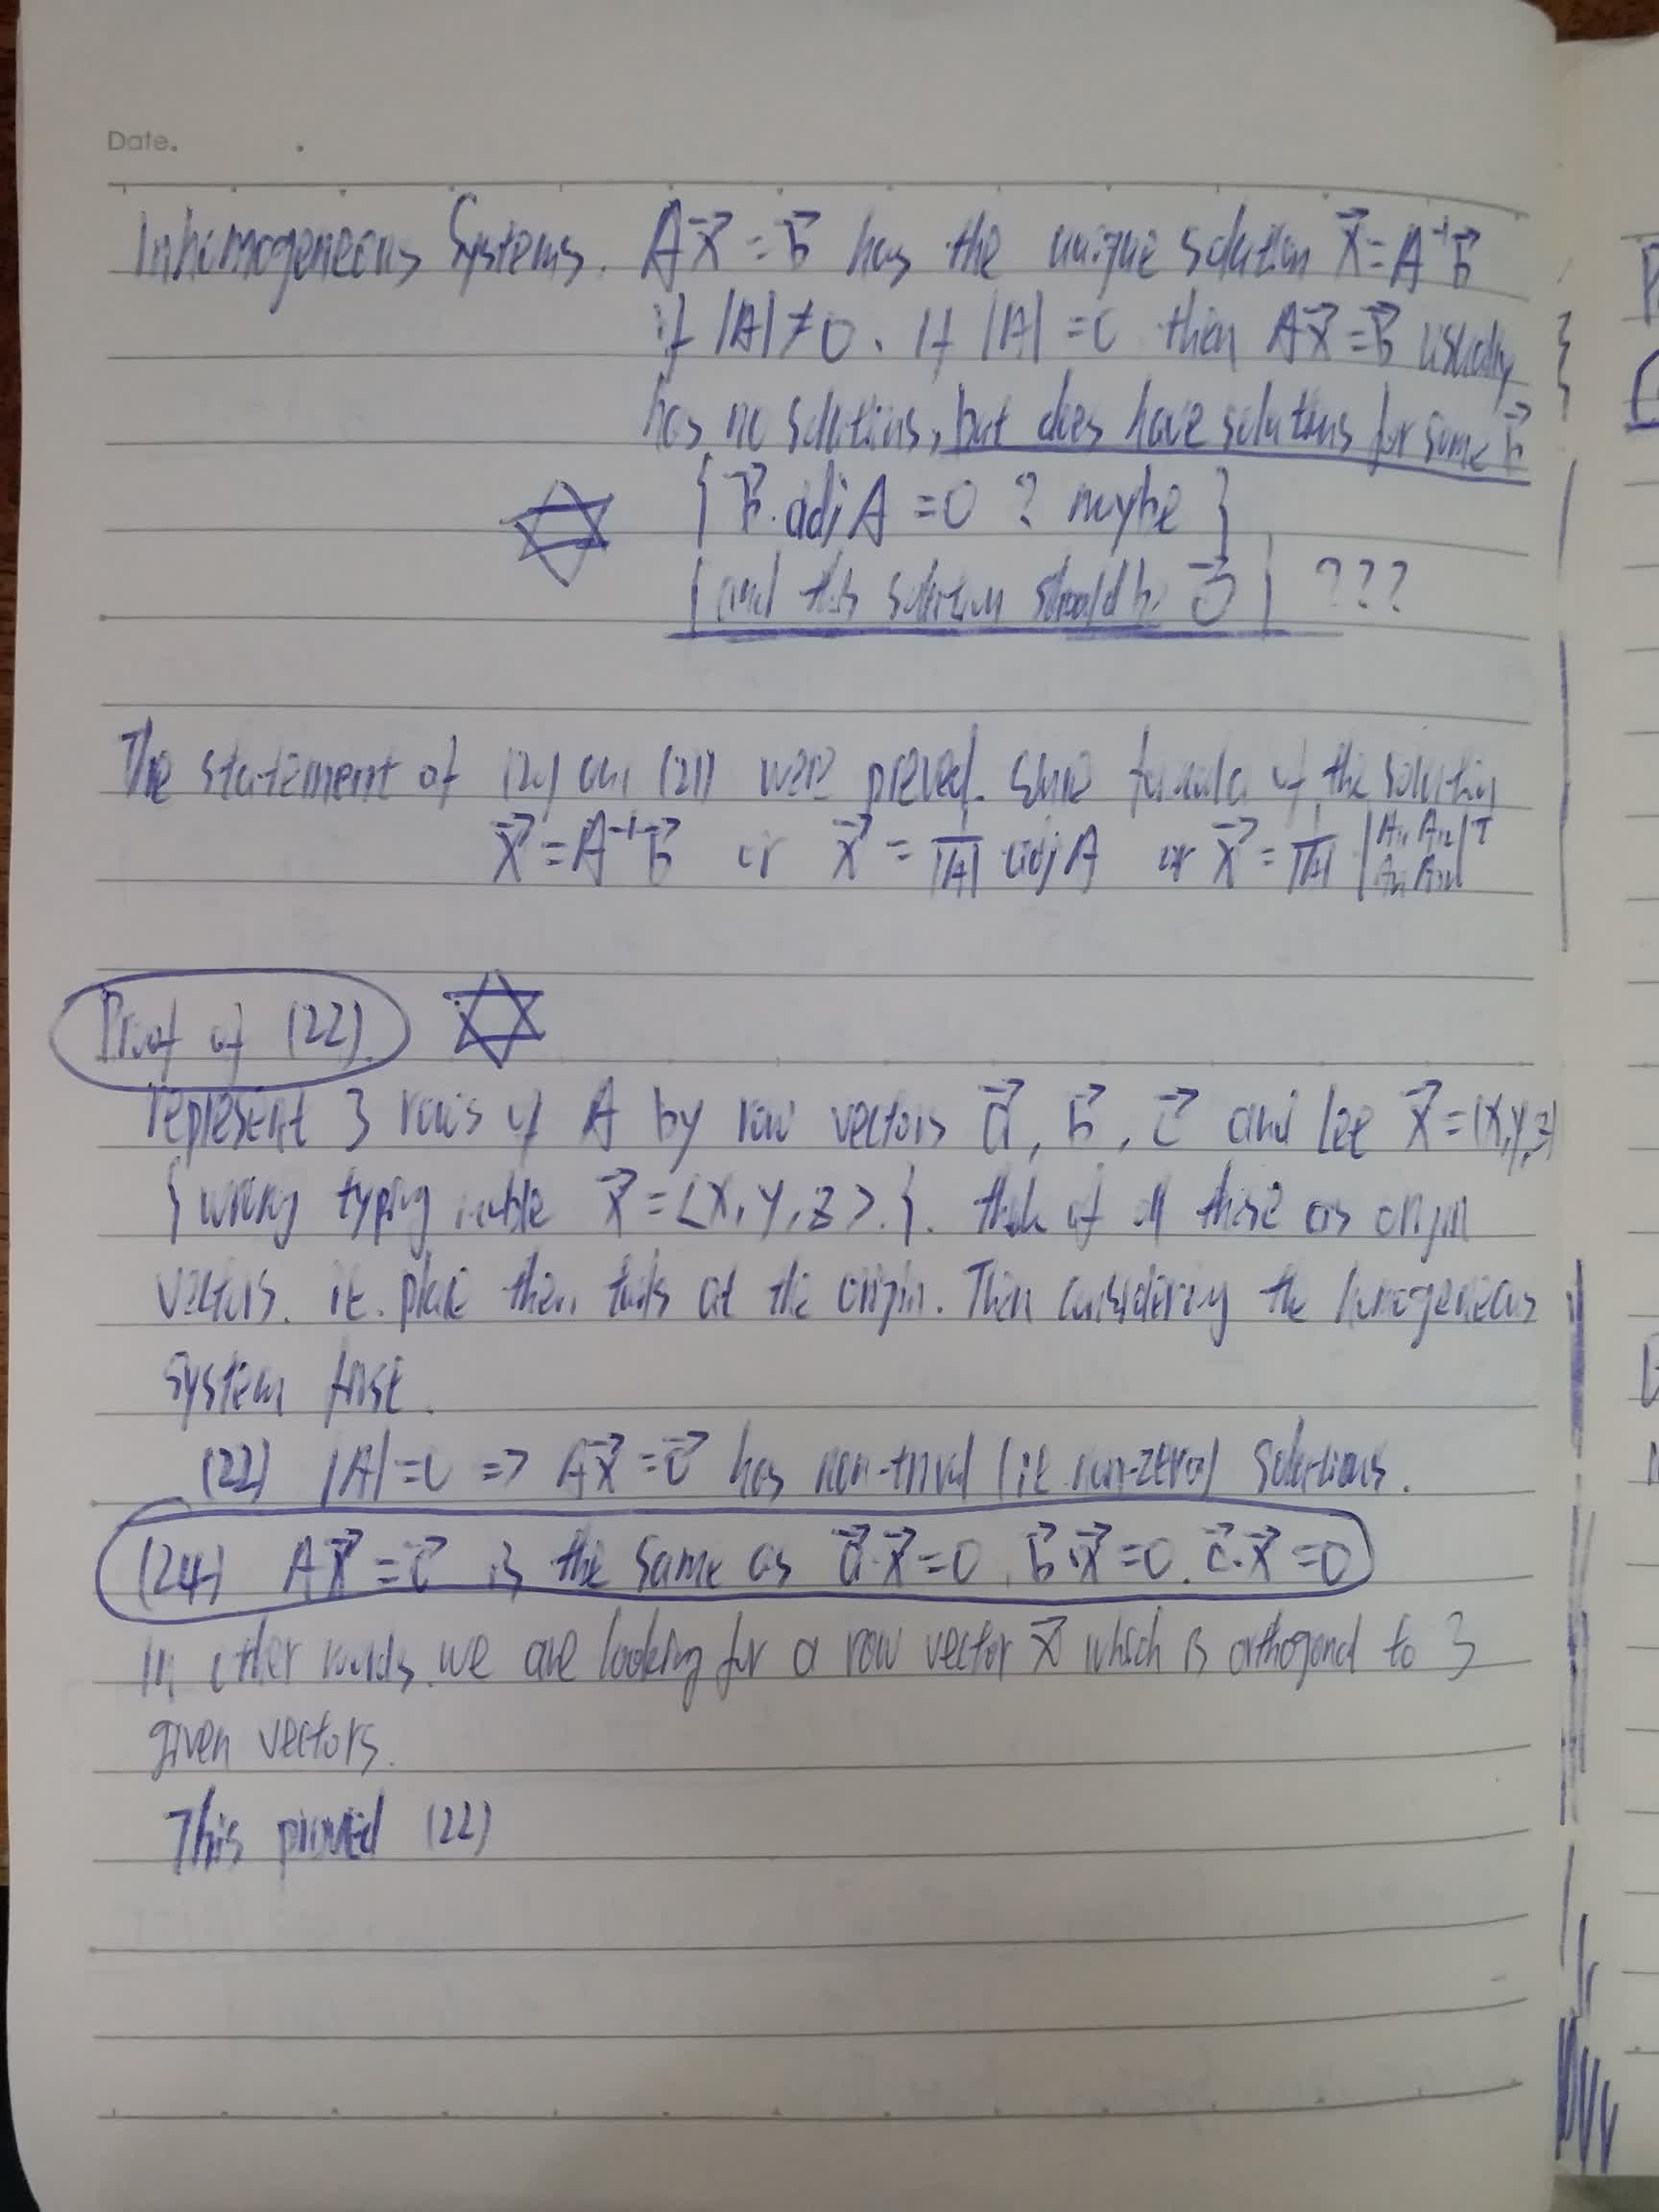 Date.
Inhomogeneous Systems. Ax⃗ = b⃗ has the unique solution x⃗ = A⁻¹b⃗
if |A| ≠ 0. If |A| = 0 then Ax⃗ = b⃗ usually
has no solutions, but does have solutions for some b⃗
{ b⃗.adj A = 0 ? maybe }
{ and this solution should be 0⃗ } ???
The statement of (20) and (21) were proved. Since formula of the solution
x⃗ = A⁻¹b⃗ or x⃗ = 1/|A| adj A or x⃗ = 1/|A| |A₁₁ A₁₂ A₂₁ A₂₂|ᵀ
Proof of (22).
represent 3 rows of A by row vectors a⃗, b⃗, c⃗ and let x⃗ = (x,y,z)
{ wrong typing x⃗ = <x, y, z>. }. think of all these as origin
vectors. ie. place their tails at the origin. Then considering the homogeneous
system first.
(22) |A| = 0 => Ax⃗ = 0⃗ has non-trival (ie non-zero) solutions.
(24) Ax⃗ = 0⃗ is the same as a⃗·x⃗ = 0, b⃗·x⃗ = 0. c⃗·x⃗ = 0
In other words. we are looking for a row vector x⃗ which is orthogonal to 3
given vectors.
This proved (22)